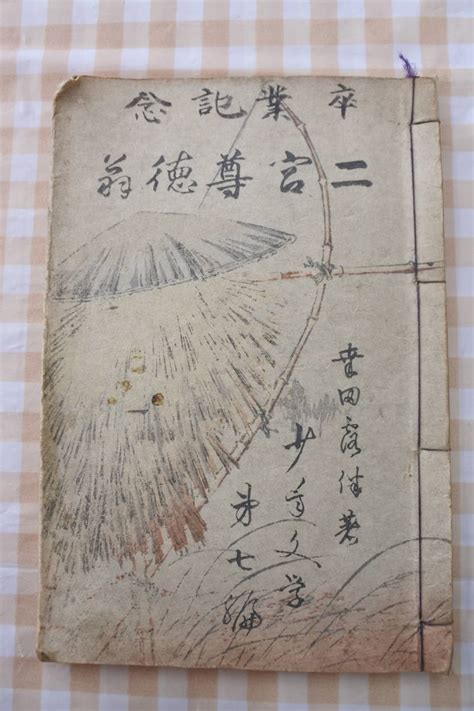 卒業記念
二宮尊徳翁
幸田露伴著
少年文学
第七編